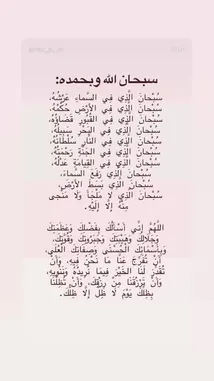 سبحان الله وبحمده:
سُبْحَانَ الَّذِي فِي السَّمَاءِ عَرْشُهُ،
سُبْحَانَ الَّذِي فِي الأَرْضِ حُكْمُهُ،
سُبْحَانَ الَّذِي فِي القُبُورِ قَضَاؤُهُ،
سُبْحَانَ الَّذِي فِي البَحْرِ سَبِيلُهُ،
سُبْحَانَ الَّذِي فِي النَّارِ سُلْطَانُهُ،
سُبْحَانَ الَّذِي فِي الجَنَّةِ رَحْمَتُهُ،
سُبْحَانَ الَّذِي فِي القِيَامَةِ عَدْلُهُ،
سُبْحَانَ الَّذِي رَفَعَ السَّمَاءَ،
سُبْحَانَ الَّذِي بَسَطَ الأَرْضَ،
سُبْحَانَ الَّذِي لَا مَلْجَأَ وَلَا مَنْجَى
مِنْهُ إِلَّا إِلَيْهِ.
اللَّهُمَّ إِنِّي أَسْأَلُكَ بِفَضْلِكَ وَعَظَمَتِكَ
وَجَلَالِكَ وَهَيْبَتِكَ وَجَبَرُوتِكَ وَقُوَّتِكَ،
وَبِأَسْمَائِكَ الْحُسْنَى وَصِفَاتِكَ الْعُلَى،
أَنْ تُفَرِّجَ عَنَّا مَا نَحْنُ فِيهِ، وَأَنْ
تُقَدِّرَ لَنَا الْخَيْرَ فِيمَا نُرِيدُهُ وَنَنْوِيهِ،
وَأَنْ تَرْزُقَنَا مِنْ رِزْقِكَ، وَأَنْ تُظِلَّنَا
بِظِلِّكَ يَوْمَ لَا ظِلَّ إِلَّا ظِلُّكَ.